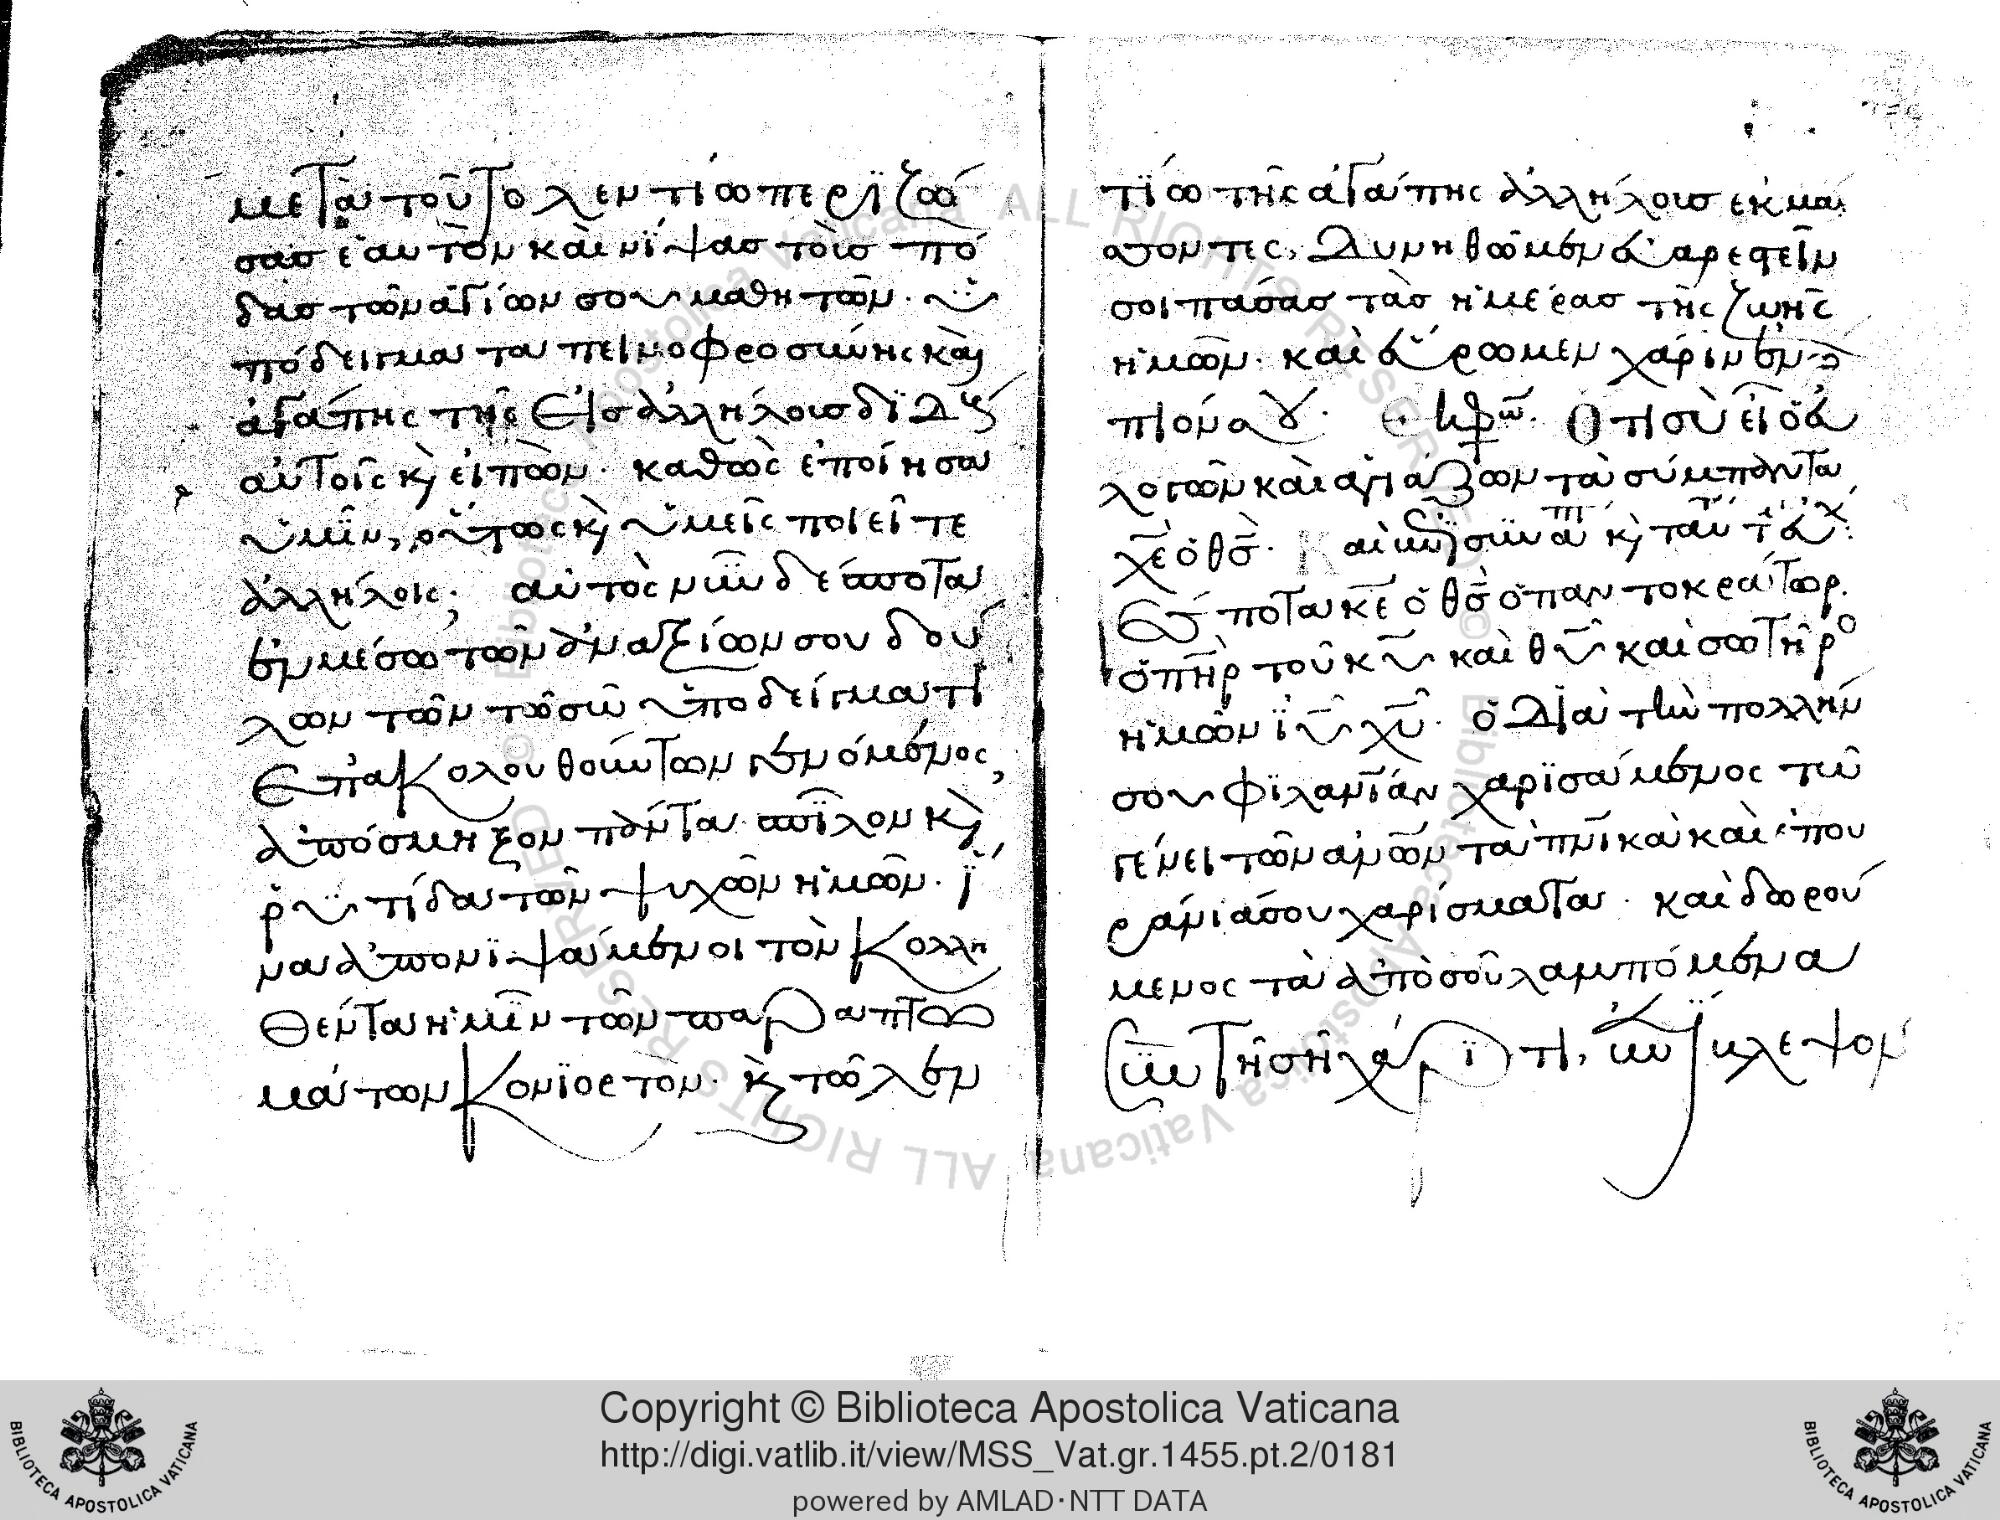 μετὰ τοῦτο λεντίω περϊζωσά
σασ ἑαυτὸν καὶ νίψασ τοὺσ πό
δασ τῶν ἁγίων σου μαθητῶν. ὑ
πόδειγμα ταπεινοφροσύνης καὶ
ἀγάπης τῆς εἰσ ἀλλήλουσ δϊδοὺς
αὐτοῖς κ(αὶ) εἰπὼν. καθὼς ἐποίησα
ὑμῖν, οὕτως κ(αὶ) ὑμεῖς ποιεῖτε
ἀλλήλοις; αὐτὸς νῦν δέσποτα
ἐν μέσω τῶν ἀναξίων σου δού
λων τῶν τῶ σῶ ὑποδείγματι
ἐπακολουθούντων γενόμενος,
ἀπόσμηξον πάντα σπῖλον κ(αὶ)
ῥυτίδα τῶν ψυχῶν ἡμῶν. ἵ
να ἀπονιψάμενοι τὸν κολλη
θέντα ἡμῖν τῶν παραπτω
μάτων κονϊορτὸν. κ(αὶ) τῶ λεν
τΐω τῆς ἀγάπης ἀλλήλουσ ἐκμά
σσοντες, δυνηθῶμεν εὐαρεστεῖν
σοι πάσασ τὰσ ἡμέρασ τῆς ζωῆς
ἡμῶν. καὶ εὕρωμεν χάριν ἐνώ
πιόν σου. ἐκφώ. Ὅτι σὺ εἶ ὁ εὐ
λογῶν καὶ ἁγιάζων τὰ σύμπαντα
χε ὁ θσ. Καὶ
Δέσποτα κε ὁ θσ ὁ παντοκράτωρ.
ὁ πηρ τοῦ κυ καὶ θυ καὶ σωτηρο
ἡμῶν ιυ χυ. ὁ διὰ τὴν πολλήν
σου φϊλανιαν χαρϊσάμενος τῶ
γένει τῶν ανων τὰ πνικὰ καὶ ἐπου
ράνιά σου χαρίσματα. καὶ δωρού
μενος τὰ ἀπὸ σοῦ λαμπόμενα
ἐν τῆ σῆ χάριτι,